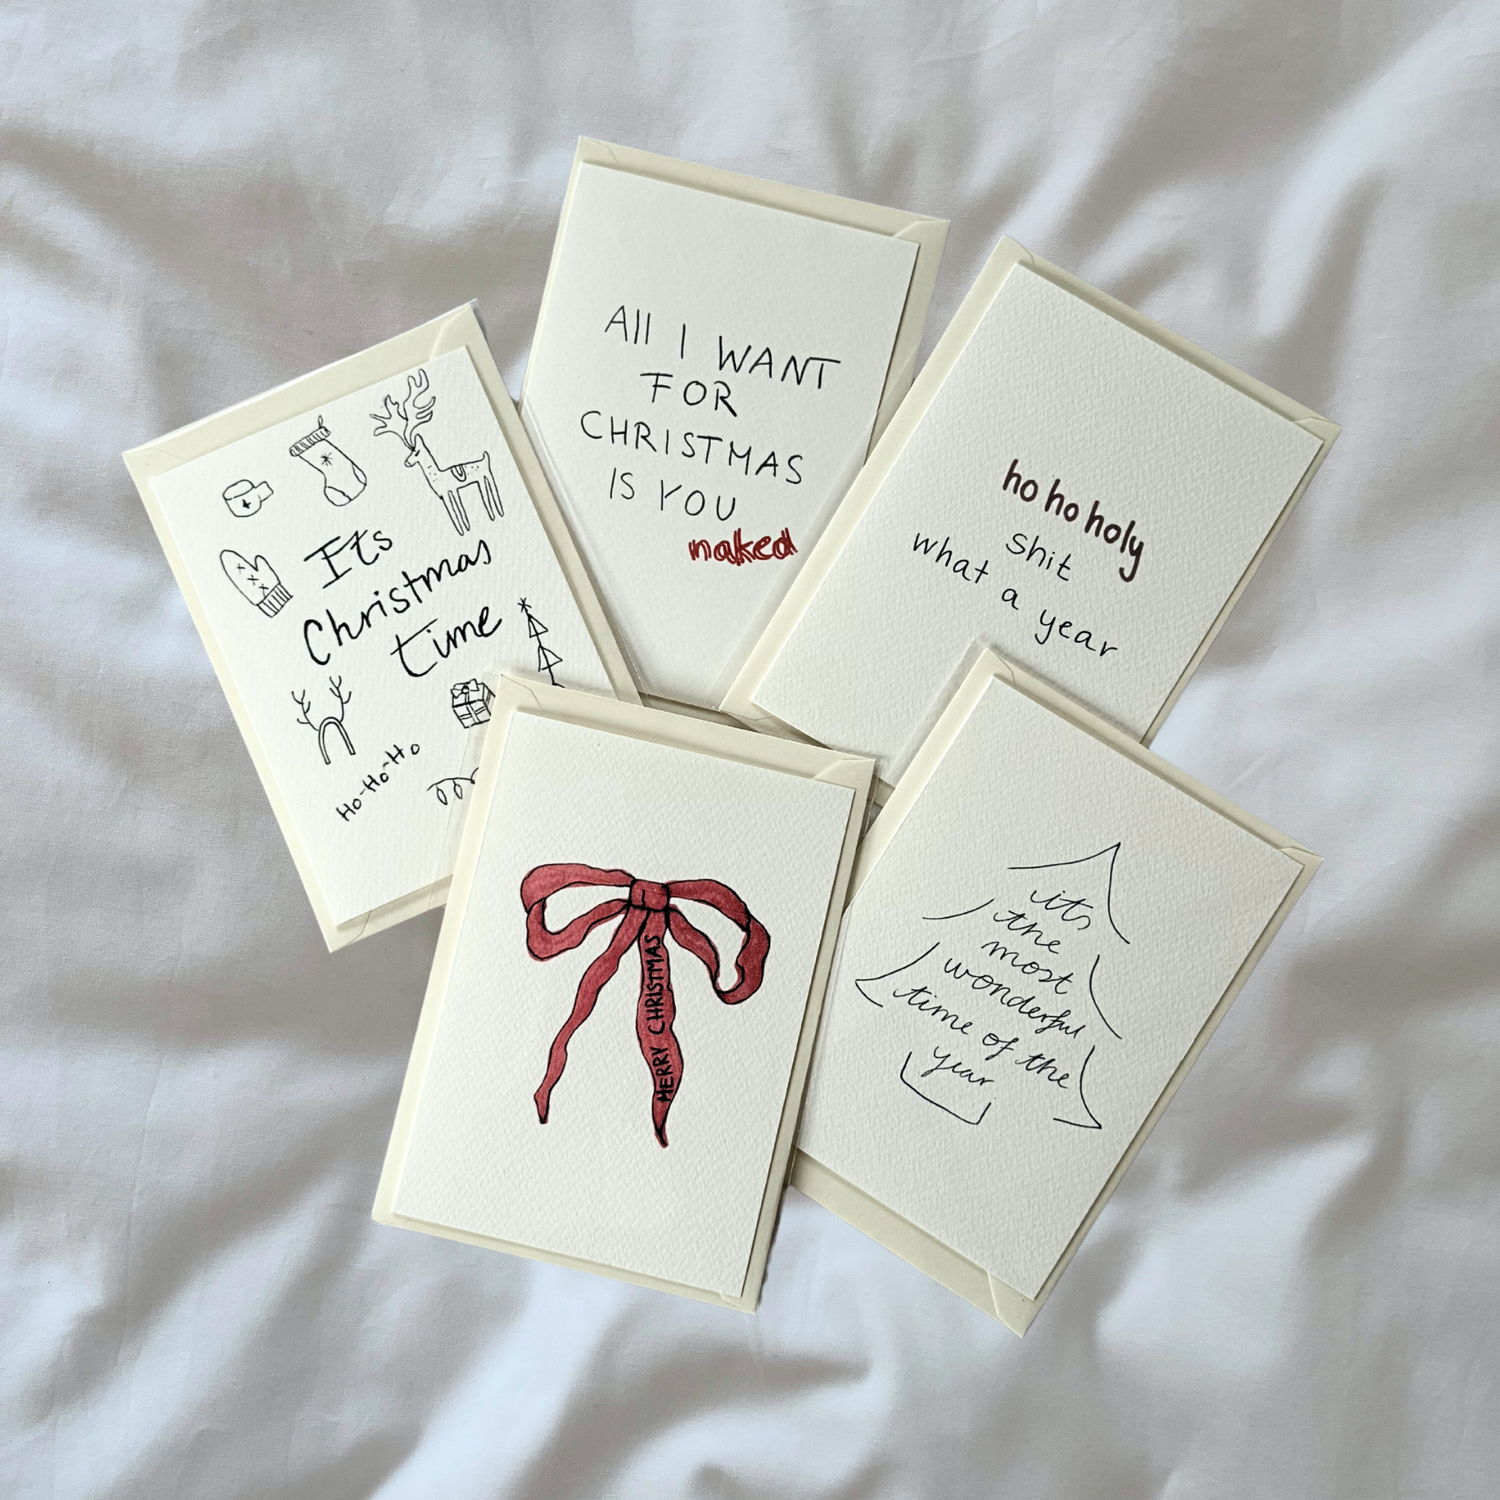 Its
Christmas
time
Ho-Ho-Ho
All I WANT
FOR
CHRISTMAS
IS YOU
naked
ho ho holy
shit
what a year
MERRY CHRISTMAS
its
the
most
wonderful
time of the
year